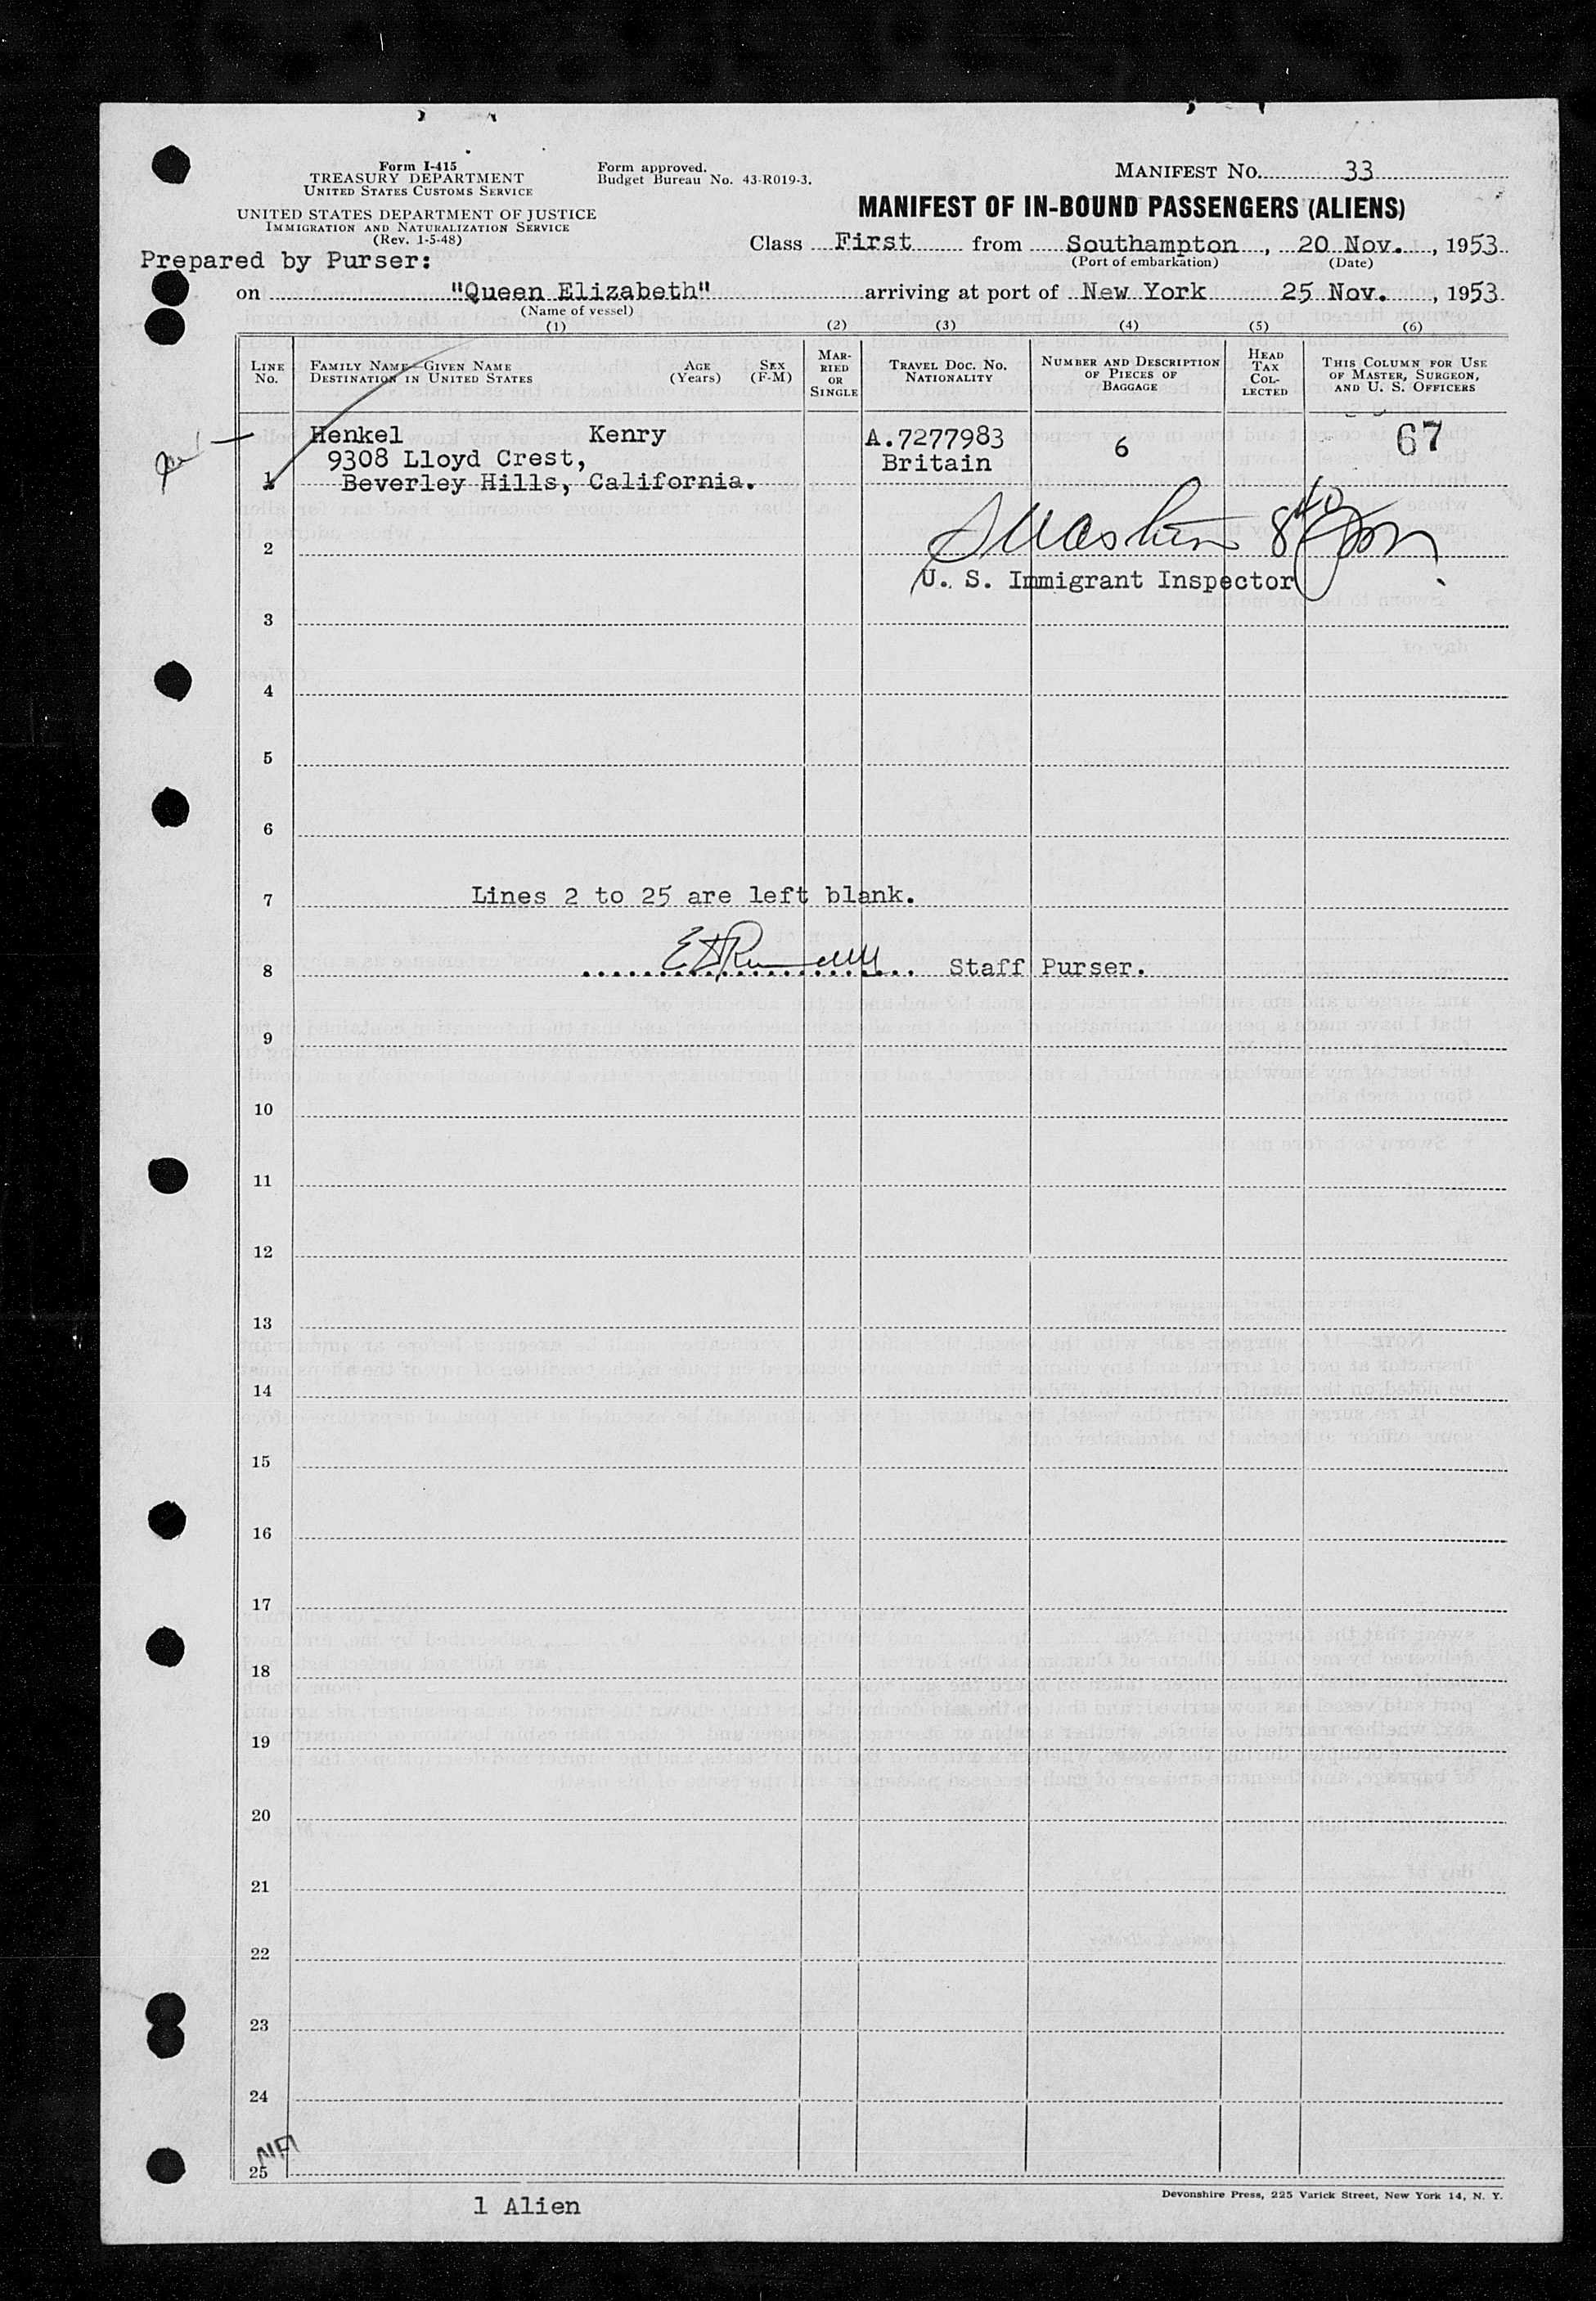 Form I-415
TREASURY DEPARTMENT
UNITED STATES CUSTOMS SERVICE
UNITED STATES DEPARTMENT OF JUSTICE
IMMIGRATION AND NATURALIZATION SERVICE
(Rev. 1-5-48)
Form approved.
Budget Bureau No. 43-R019-3.
MANIFEST NO. 33
MANIFEST OF IN-BOUND PASSENGERS (ALIENS)
Class First from Southampton, 20 Nov., 1953
(Port of embarkation) (Date)
Prepared by Purser:
on "Queen Elizabeth" arriving at port of New York 25 Nov., 1953
(Name of vessel)
(1) (2) (3) (4) (5) (6)
LINE No.
FAMILY NAME—GIVEN NAME
DESTINATION IN UNITED STATES
AGE (Years)
SEX (F-M)
MARRIED OR SINGLE
TRAVEL DOC. NO. NATIONALITY
NUMBER AND DESCRIPTION OF PIECES OF BAGGAGE
HEAD TAX COLLECTED
THIS COLUMN FOR USE OF MASTER, SURGEON, AND U. S. OFFICERS
Henkel Kenry A.7277983 6 67
9308 Lloyd Crest, Britain
1 Beverley Hills, California.
2
U. S. Immigrant Inspector
3
4
5
6
7 Lines 2 to 25 are left blank.
8 Staff Purser.
9
10
11
12
13
14
15
16
17
18
19
20
21
22
23
24
25
Devonshire Press, 225 Varick Street, New York 14, N. Y.
1 Alien